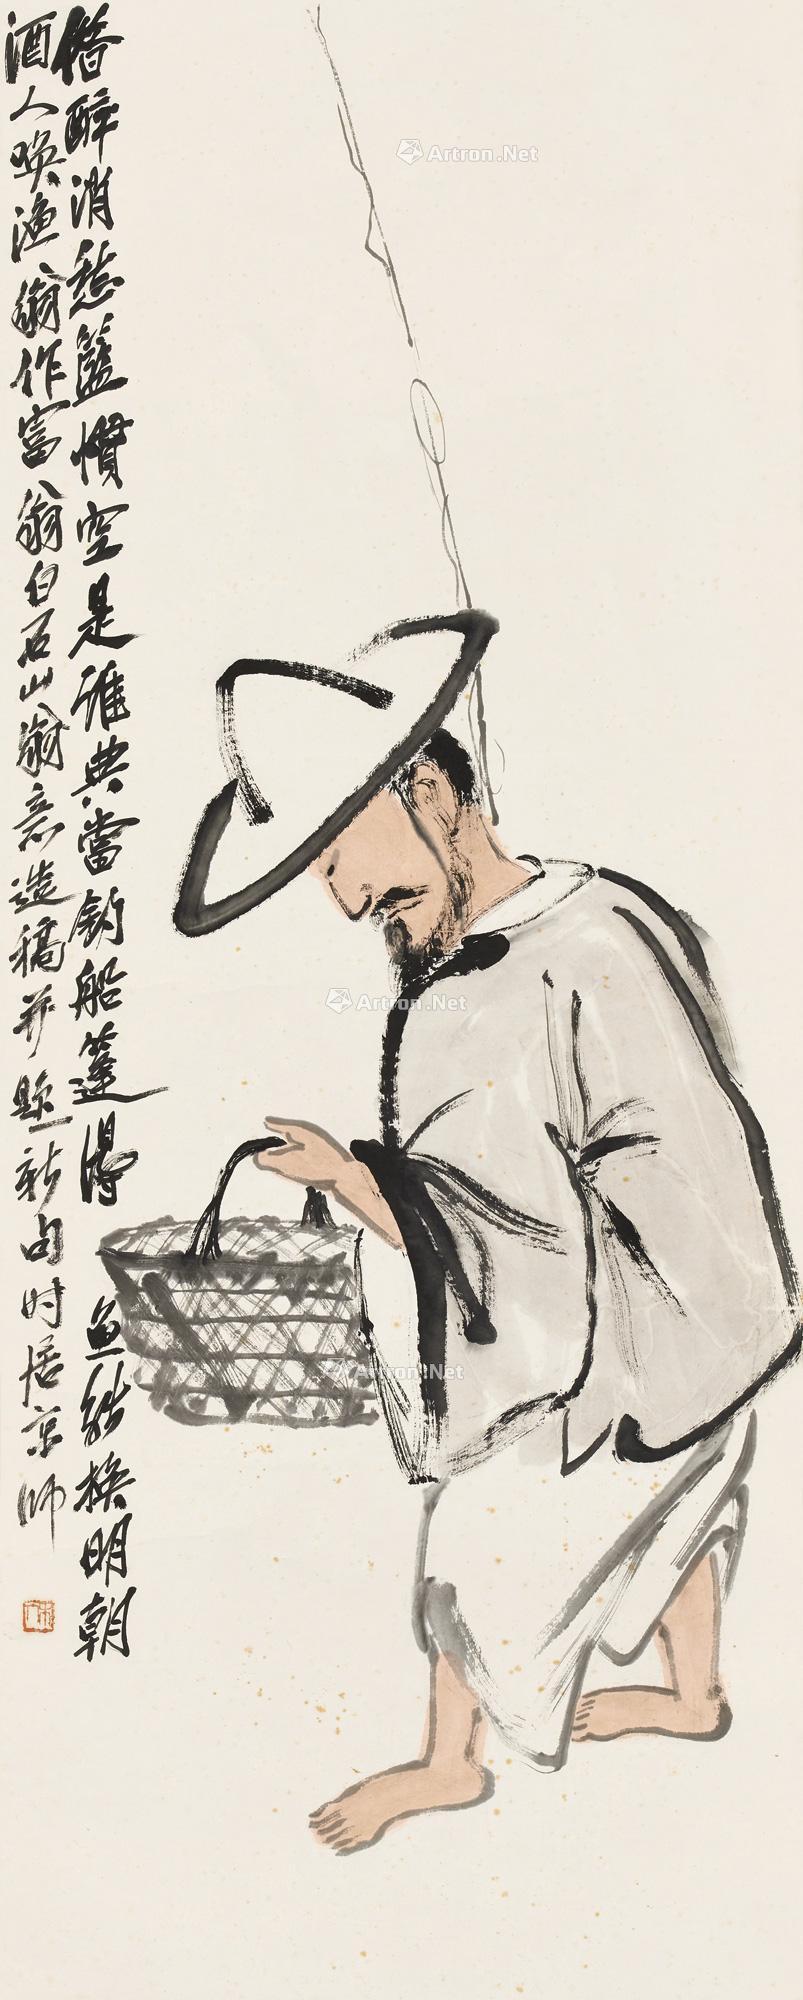 借醉消愁篮惯空是谁典当钓船篷得鱼能换明朝
酒人唤渔翁作富翁白石山翁意造稿并题新句时居京师
Artron.Net
Artron.Net
Artron.Net